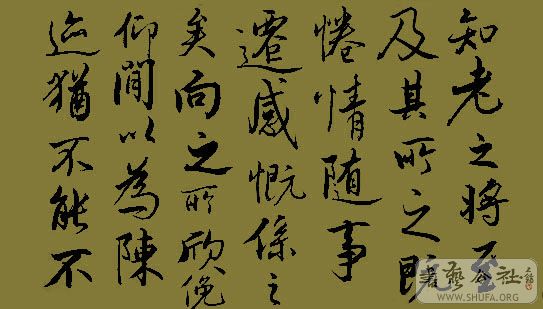 知老之將至
及其所之既
惓情隨事
遷感慨係之
矣向之所欣俛
仰閒以為陳
迹猶不能不
書藝公社
WWW.SHUFA.ORG